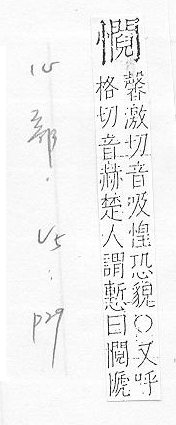 馨激切音吸惶恐貌○又呼
格切音赫楚人謂慙曰
心部. V5: p29